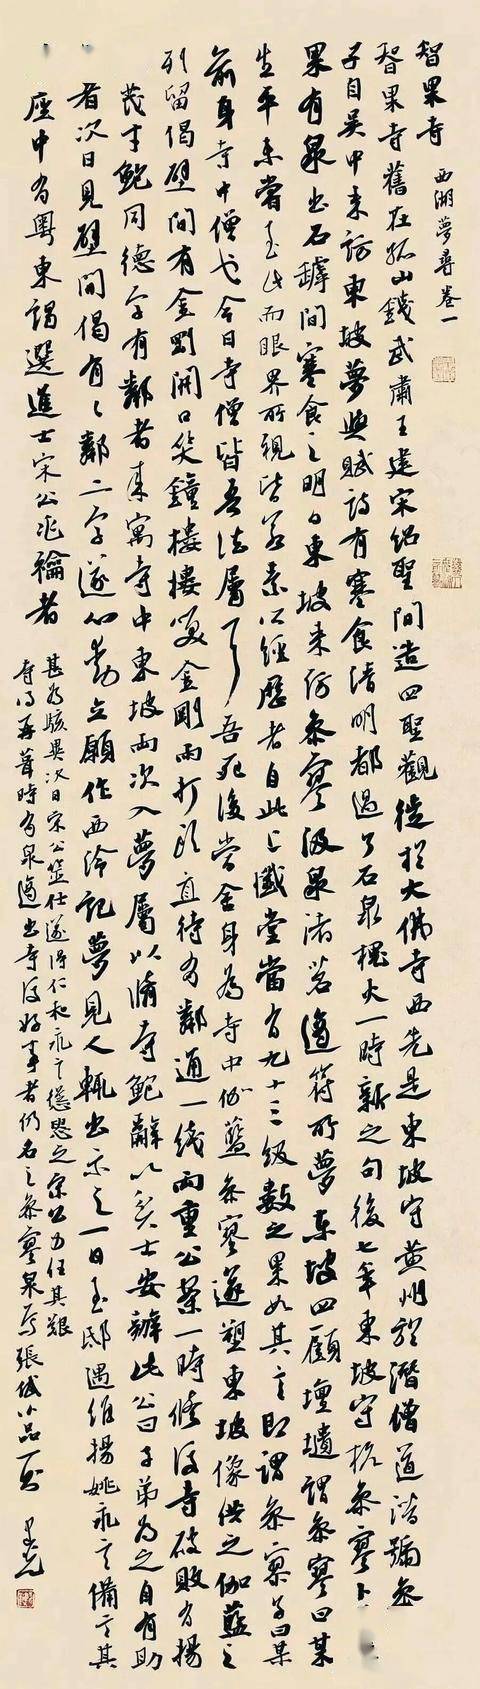 智果寺 西湖夢尋卷一
智果寺舊在孤山錢武肅王建宋紹聖間造四聖觀徙於大佛寺西先是東坡守黃州於潛僧道潛號參
子自吳中來訪東坡夢與賦詩有寒食清明都過了石泉槐火一時新之句後七年東坡守杭參寥卜
果有泉出石罅間寒食之明日東坡來訪參寥汲泉煮茗適符所夢東坡四顧壇壝謂參寥曰某
生平未嘗至此而眼界所視皆若素所經歷者自此上懺堂當有九十三級數之果如其言即謂參寥子曰某
前身寺中僧也今日寺僧皆吾法屬耳吾死後當舍身為寺中伽藍參寥遂塑東坡像供之伽藍之
列留偈壁間有金剛開口笑鐘樓樓笑金剛雨打頭直待有鄰通一線兩重公案一時修後寺破敗有揚
茂才鮑同德字有鄰者來寓寺中東坡兩次入夢屬以脩寺鮑辭以貧士安辦此公曰子弟為之自有助
者次日見壁間偈有有鄰二字遂心動立願作西泠記夢見人輒出示之一日至邸遇維揚姚永言備言其
座中有粵東謁選進士宋公兆禴者
甚為駭異次日宋公筮仕遂得仁和永言慫恿之宋公力任其艱
寺得再葺時有泉適出寺後好事者仍名之參寥泉焉 張岱小品一則